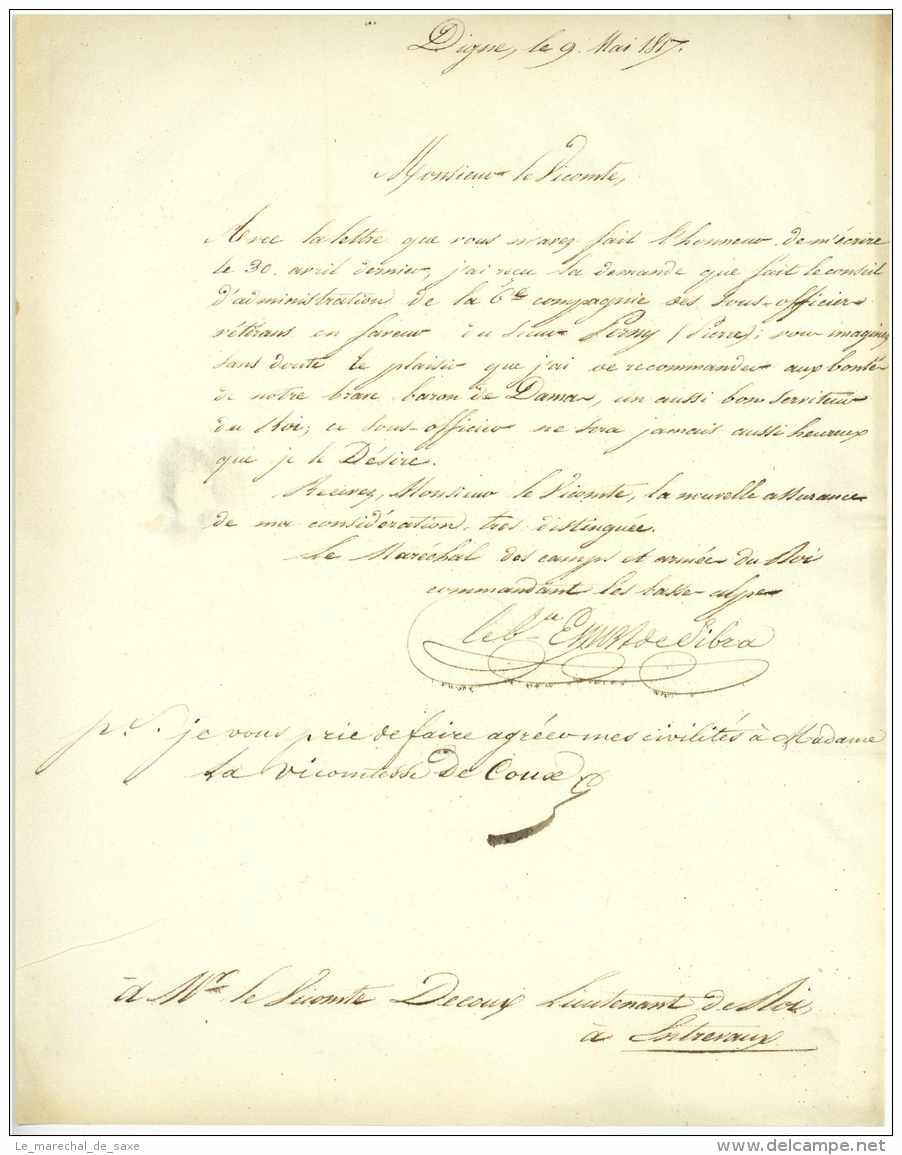 Digne, le 9. Mai 1817.
Monsieur le Vicomte,
Avec la lettre que vous m'avez fait l'honneur de m'écrire
le 30. avril dernier, j'ai reçu la demande que fait le conseil
d'administration de la 6e compagnie des sous-officiers
vétérans en faveur du sieur (Pierre); vous imaginez
sans doute le plaisir que j'ai de recommander aux bontés
de notre brave baron de Damas, un aussi bon serviteur
du Roi; ce sous-officier ne sera jamais aussi heureux
que je le Désire.
Recevez, Monsieur le Vicomte, la nouvelle assurance
de ma considération très distinguée.
Le Maréchal des camps et armées du Roi
commandant les basses alpes
le Bon de Sibra
p.S. je vous prie de faire agréer mes civilités à Madame
la vicomtesse De Coux
à Mr. le Vicomte Decoux Lieutenant de Roi,
à Entrevaux
Le_marechal_de_saxe
delcampe.net